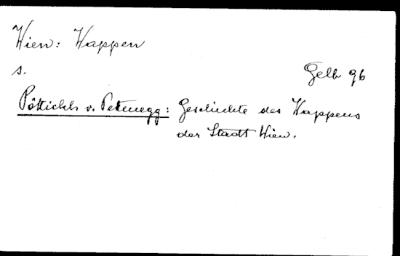 Wien: Wappen
s.
Gelb 96
Pöttickh v. Pettenegg: Geschichte des Wappens
der Stadt Wien.